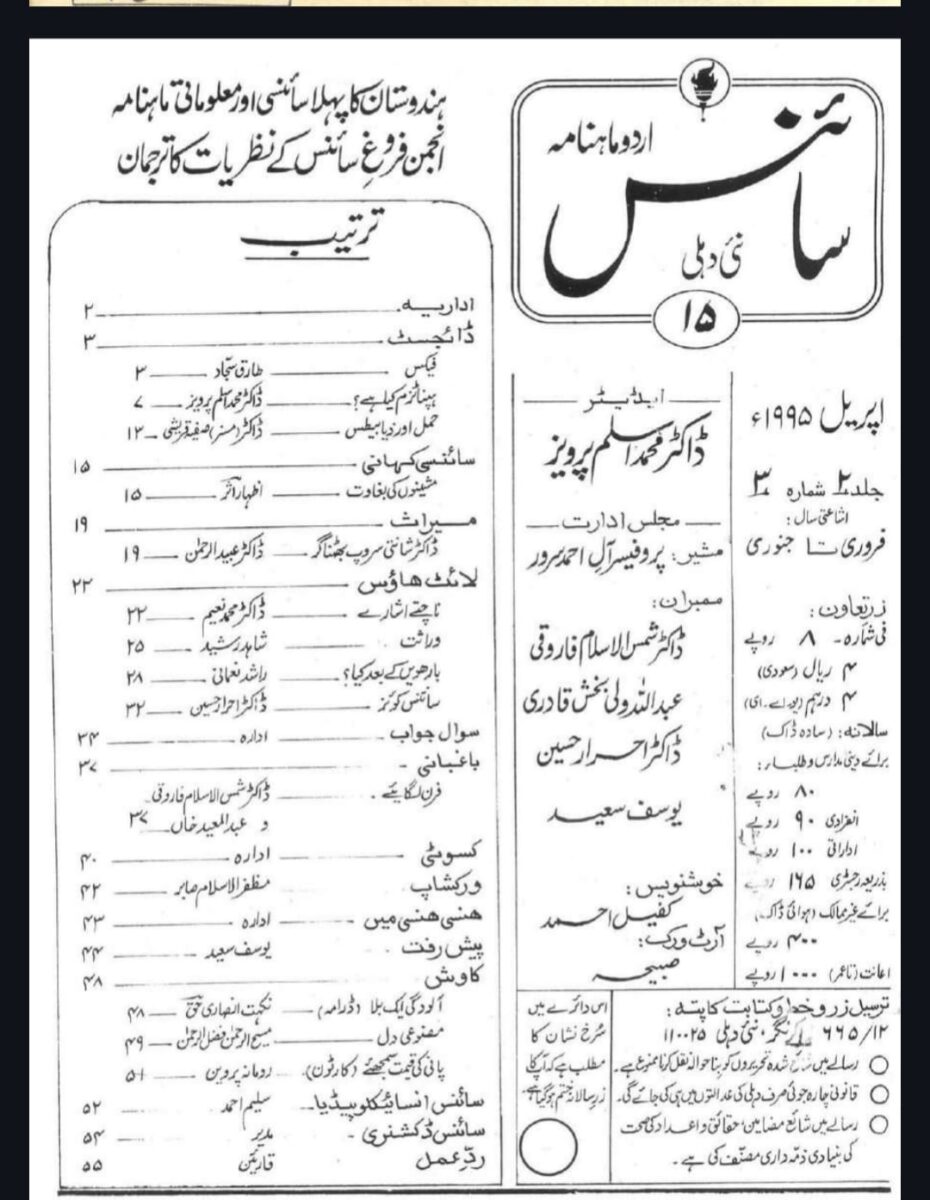 ہندوستان کا پہلا سائنسی اور معلوماتی ماہنامہ
انجمن فروغِ سائنس کے نظریات کا ترجمان
اردو ماہنامہ
سائنس
نئی دہلی
۱۵
ترتیب
اداریہ ۲
ڈائجسٹ ۳
فیکس طارق سجاد ۳
ہپناٹزم کیا ہے؟ ڈاکٹر محمد اسلم پرویز ۷
حمل اور ذیابیطس ڈاکٹر (مسز) صفیہ قریشی ۱۲
سائنسی کہانی ۱۵
مشینوں کی بغاوت اظہار اثر ۱۵
میراث ۱۹
ڈاکٹر شانتی سروپ بھٹناگر ڈاکٹر عبید الرحمٰن ۱۹
لائٹ ھاؤس ۲۲
ناچتے اشارے ڈاکٹر محمد نعیم ۲۲
وراثت شاہد رشید ۲۵
بارھویں کے بعد کیا؟ راشد نعمانی ۲۸
سائنس کوئز ڈاکٹر احرار حسین ۳۲
سوال جواب ادارہ ۳۴
باغبانی ۳۷
فرن لگایئے ڈاکٹر شمس الاسلام فاروقی
و عبد المعید خاں ۳۷
کسوٹی ادارہ ۴۰
ورکشاپ مظفر الاسلام صابر ۴۲
ھنسی ھنسی میں ادارہ ۴۳
پیش رفت یوسف سعید ۴۴
کاوش ۴۸
آلودگی ایک بلا (ڈرامہ) نکہت انصاری حق ۴۸
مصنوعی دل مسیع الرحمٰن فضل الرحمٰن ۴۹
پانی کی قیمت سمجھئے (کارٹون) رومانہ پروین ۵۱
سائنس انسائیکلوپیڈیا سلیم احمد ۵۲
سائنس ڈکشنری مدیر ۵۴
ردِّ عمل قارئین ۵۵
اپریل ۱۹۹۵ء
جلد ۲ شمارہ ۳
اشاعتی سال:
فروری تا جنوری
زر تعاون:
فی شمارہ۔ ۸ روپے
۴ ریال (سعودی)
۴ درہم (یو۔اے۔ای)
سالانہ: (سادہ ڈاک)
برائے دینی مدارس و طلباء:
۸۰ روپے
انفرادی ۹۰ روپے
اداراتی ۱۰۰ روپے
بذریعہ رجسٹری ۱۶۵ روپے
برائے غیر ممالک (ہوائی ڈاک)
۴۰۰ روپے
اعانت (تاعمر) ۱۰۰۰ روپے
ایڈیٹر
ڈاکٹر محمد اسلم پرویز
مجلس ادارت
مشیر: پروفیسر آل احمد سرور
ممبران:
ڈاکٹر شمس الاسلام فاروقی
عبداللہ ولی بخش قادری
ڈاکٹر احرار حسین
یوسف سعید
خوشنویس:
کفیل احمد
آرٹ ورک:
صبیحہ
ترسیل زر و خط و کتابت کا پتہ:
۶۶۵/۱۲ نگر، نئی دہلی ۱۱۰۰۲۵
رسالے میں شائع شدہ تحریروں کو بنا حوالہ نقل کرنا ممنوع ہے۔
قانونی چارہ جوئی صرف دہلی کی عدالتوں میں ہی کی جائے گی۔
رسالے میں شائع مضامین، حقائق و اعداد کی صحت
کی بنیادی ذمہ داری مصنف کی ہے۔
اس دائرے میں
سُرخ نشان کا
مطلب ہے کہ آپ کا
زر سالانہ ختم ہو گیا ہے